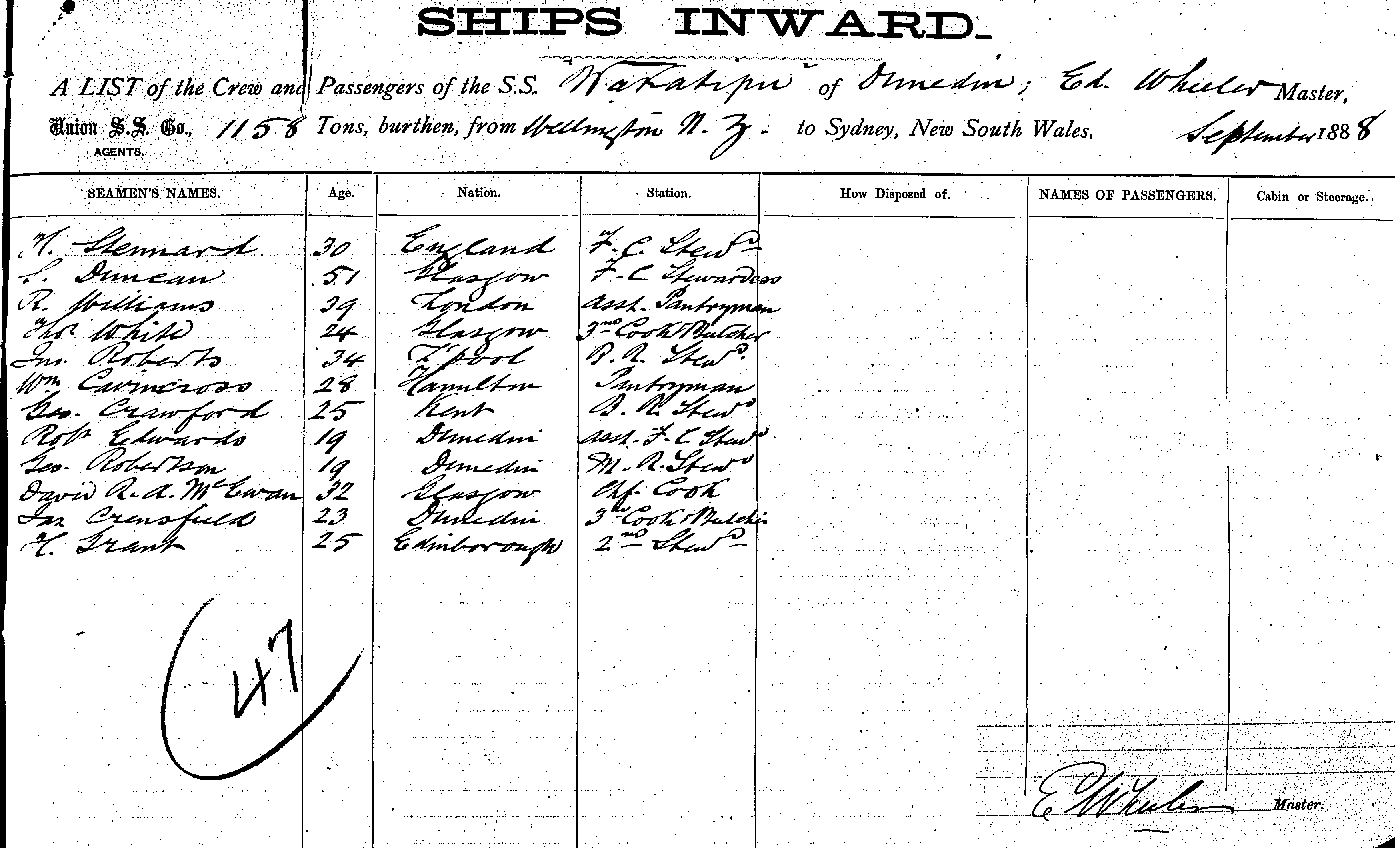 SHIPS INWARD.
A LIST of the Crew and Passengers of the S.S. Wakatipu of Dunedin; Ed. Wheeler Master,
Union S.S. Co., 1158 Tons, burthen, from Wellington N.Z. to Sydney, New South Wales, September 1888
AGENTS.
SEAMEN'S NAMES. Age. Nation. Station. How Disposed of. NAMES OF PASSENGERS. Cabin or Steerage.
H. Stennard 30 England F.C. Stewd
Duncan 51 Glasgow F.C Stewardess
R. Williams 39 London Asst. Pantryman
Thos White 24 Glasgow 3rd Cook & Butcher
Jno. Roberts 34 L'pool B.R. Stewd
Wm Cairncross 28 Hamilton Pantryman
Geo. Crawford 25 Kent B.R. Stewd
Robt Edwards 19 Dunedin Asst. F.C Stewd
Geo. Robertson 19 Dunedin M.R. Stewd
David R.A. McEwan 32 Glasgow Chf. Cook
Jas 23 Dunedin 3rd Cook & Butcher
H. Grant 25 Edinborough 2nd Stewd
47
E Wheeler Master.